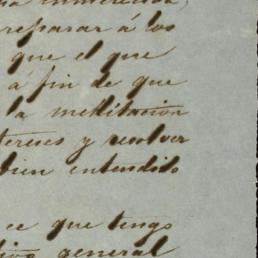 preparar á los
que el que
á fin de que
la meditación
tereses y resolver
bien entendido
ce que tengo
general